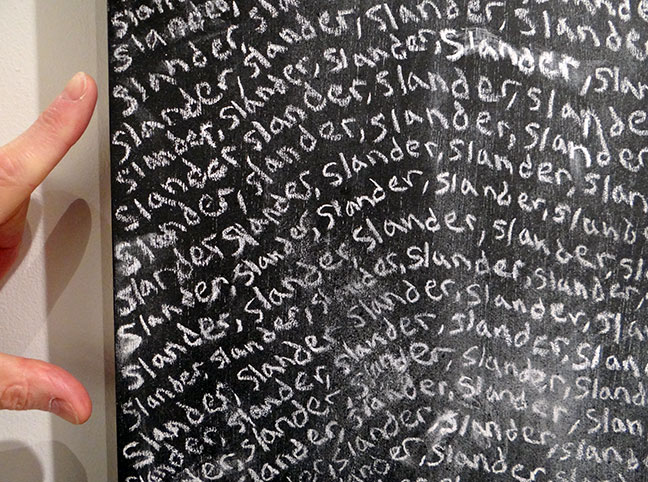 Slander, slander, slander,
Slander, slander, slander, slander,
slander, slander, slander, Slander, slan
slander, slander, slander, slander, slande
slander, slander, slander, slander, slander
slander, slander, slander, slander, slan
slander, slander, slander, slander, slander
slander, slander, slander, slander, sl
Slander, slander, slander, slander, slander,
Slander, slander, slander, slander, slan
slander, slander, slander, slander, sland
Slander, slander, slander, slander, slan
slander, slander, slander, slander